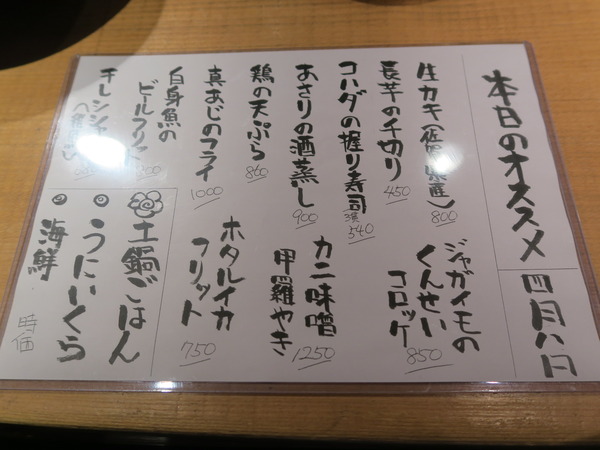 本日のオススメ
四月八日
生カキ(佐賀県産)
800
長芋の千切り
450
コハダの握り寿司
2貫
540
あさりの酒蒸し
900
鶏の天ぷら
860
真あじのフライ
1000
白身魚の
ビールフリット
干しシシャモ
ジャガイモの
くんせい
コロッケ
850
カニ味噌
甲羅やき
1250
ホタルイカ
フリット
750
土鍋ごはん
うにいくら
海鮮
時価